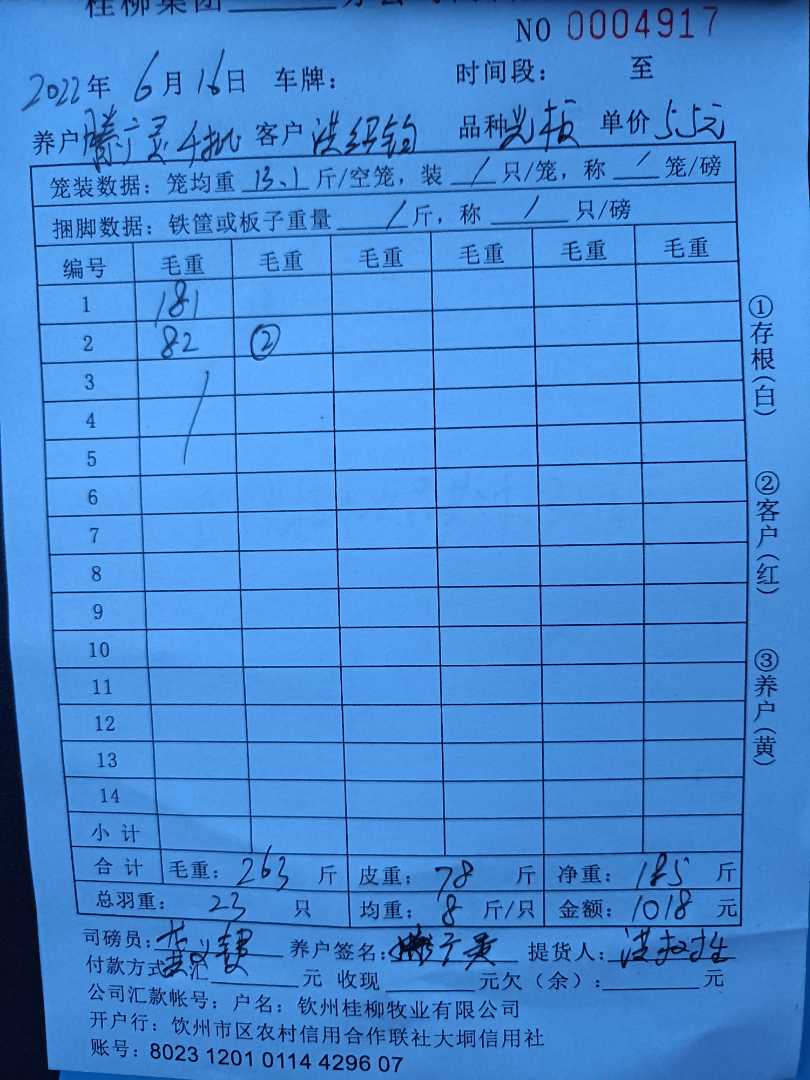 桂柳集团
NO 0004917
2022年 6月16日 车牌: 时间段: 至
养户 滕广灵 客户 洪绍 品种 单价 5.5元
笼装数据: 笼均重 13.1 斤/空笼, 装 / 只/笼, 称 / 笼/磅
捆脚数据: 铁筐或板子重量 / 斤, 称 / 只/磅
编号 毛重 毛重 毛重 毛重 毛重 毛重
1 181
2 82 ②
3
4
5
6
7
8
9
10
11
12
13
14
小计
合计 毛重: 263 斤 皮重: 78 斤 净重: 185 斤
总羽重: 23 只 均重: 8 斤/只 金额: 1018 元
司磅员: 养户签名: 滕广灵 提货人: 洪
付款方式: 汇 元 收现 元欠(余): 元
公司汇款帐号: 户名: 钦州桂柳牧业有限公司
开户行: 钦州市区农村信用合作联社大垌信用社
账号: 8023 1201 0114 4296 07
①存根(白)
②客户(红)
③养户(黄)